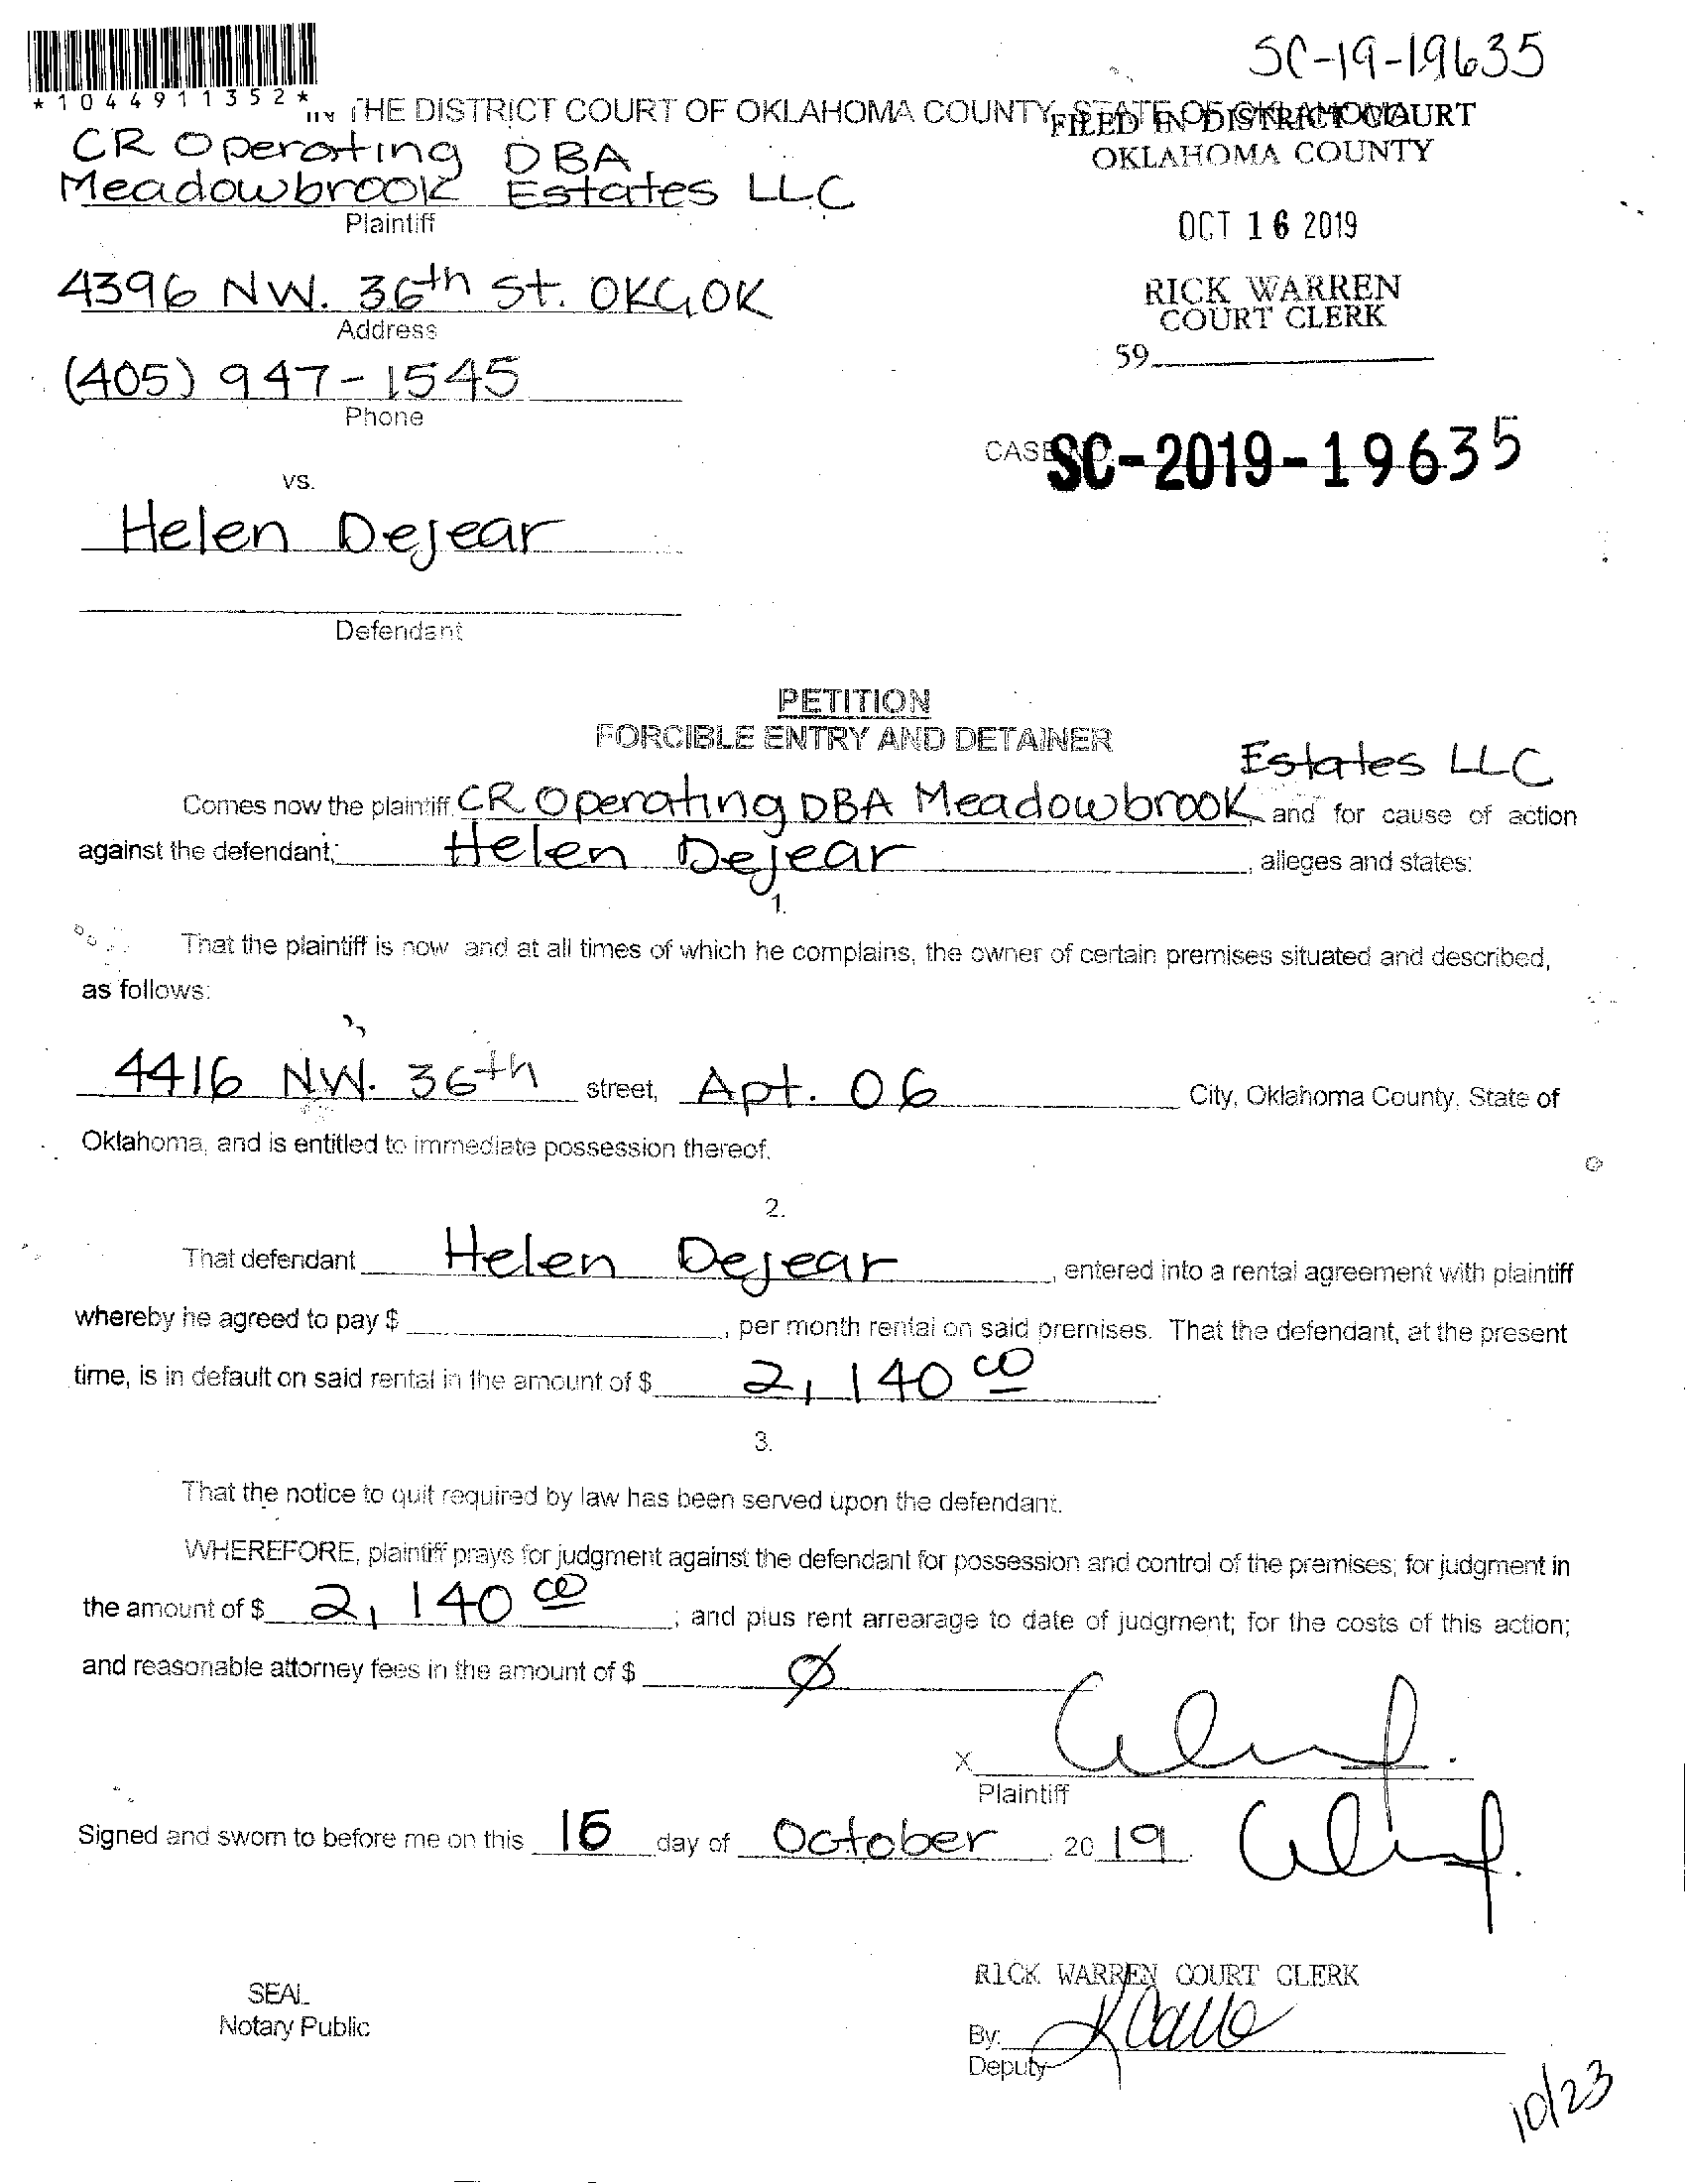 SC-19-19635
*1044911352*
IN THE DISTRICT COURT OF OKLAHOMA COUNTY, STATE OF OKLAHOMA
FILED IN DISTRICT COURT
OKLAHOMA COUNTY
CR Operating DBA
Meadowbrook Estates LLC
Plaintiff
OCT 16 2019
4396 NW. 36th St. OKC, OK
Address
RICK WARREN
COURT CLERK
59
(405) 947-1545
Phone
CASE NO. SC-2019-19635
vs.
Helen Dejear
Defendant
PETITION
FORCIBLE ENTRY AND DETAINER
Estates LLC
Comes now the plaintiff CR Operating DBA Meadowbrook, and for cause of action
against the defendant, Helen Dejear, alleges and states:
1.
That the plaintiff is now and at all times of which he complains, the owner of certain premises situated and described,
as follows:
4416 NW. 36th street, Apt. 06 City, Oklahoma County, State of
Oklahoma, and is entitled to immediate possession thereof.
2.
That defendant Helen Dejear, entered into a rental agreement with plaintiff
whereby he agreed to pay $, per month rental on said premises. That the defendant, at the present
time, is in default on said rental in the amount of $ 2,140 00.
3.
That the notice to quit required by law has been served upon the defendant.
WHEREFORE, plaintiff prays for judgment against the defendant for possession and control of the premises; for judgment in
the amount of $ 2,140 00; and plus rent arrearage to date of judgment; for the costs of this action;
and reasonable attorney fees in the amount of $ Ø
X
Plaintiff
Signed and sworn to before me on this 16 day of October, 20 19.
RICK WARREN COURT CLERK
SEAL
Notary Public
By:
Deputy
10/23